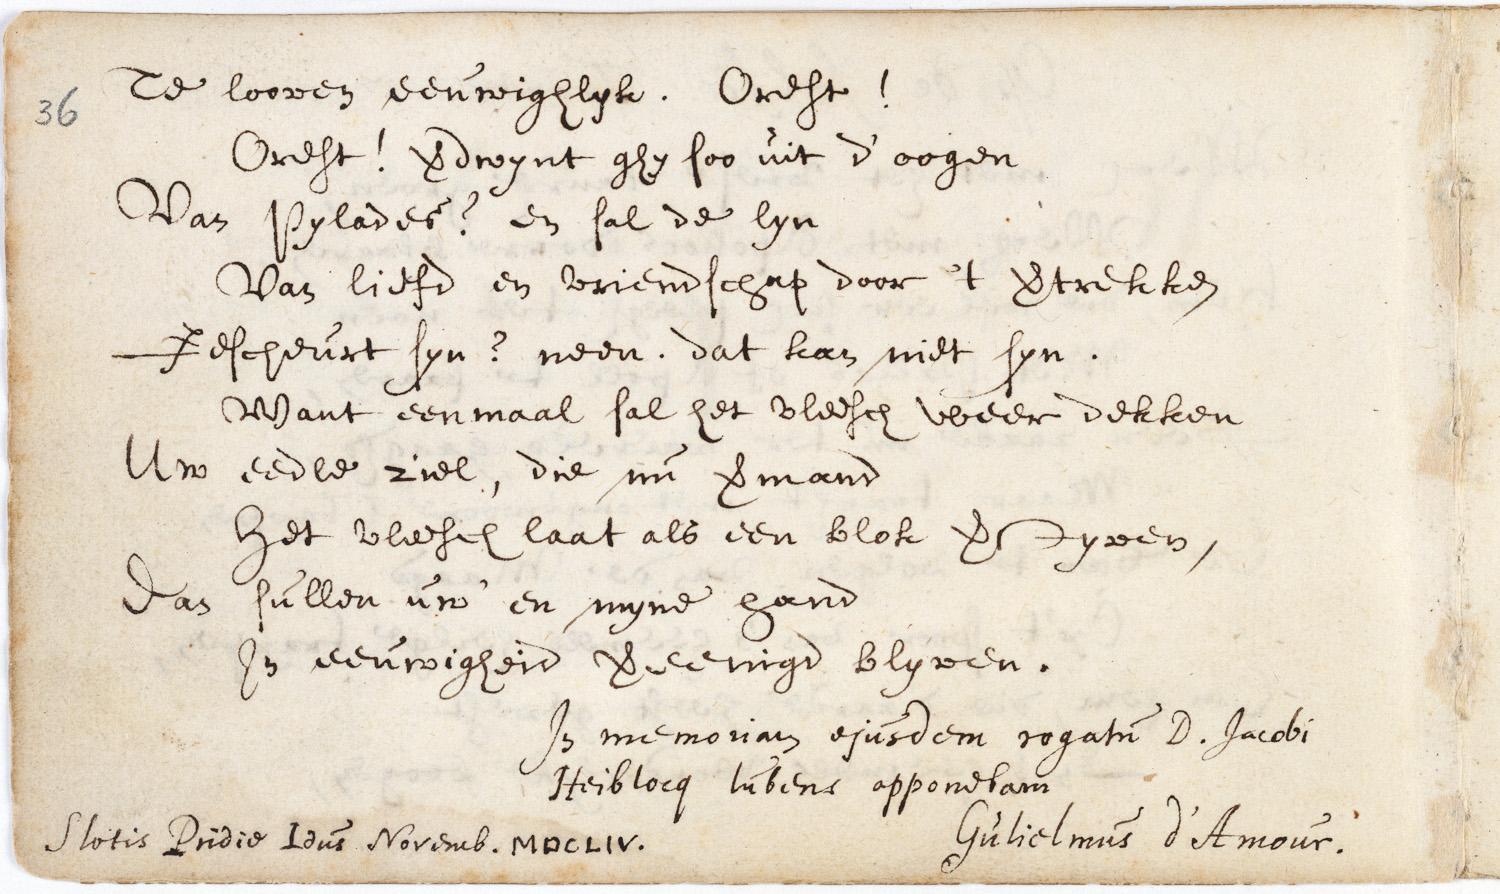 36
Te looven eeuwighlyk. Orest!
Orest! v̄dwynt ghy soo uit d'oogen
Van Pylades? en sal de lyn
Van liefd en vriendschap door 't v̄trekken
Gescheurt syn? neen. dat kan niet syn.
Want eenmaal sal het vleesch weer dekken
Uw eedle ziel, die nu v̄mand
Het vleesch laat als een blok v̄ styven,
Dan sullen uw' en myne hand
In eeuwigheid v̄eenigd blyven.
In memoriam ejusdem rogatū D. Jacobi
Heiblocq lubens apponebam
Slotis Pridie Idus Novemb. MDCLIV.
Gulielmus d'Amour.